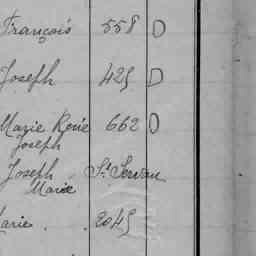 François 558 D
Joseph 425 D
Marie René 662 D
Joseph
Joseph St Servan
Marie
Marie . . 2045